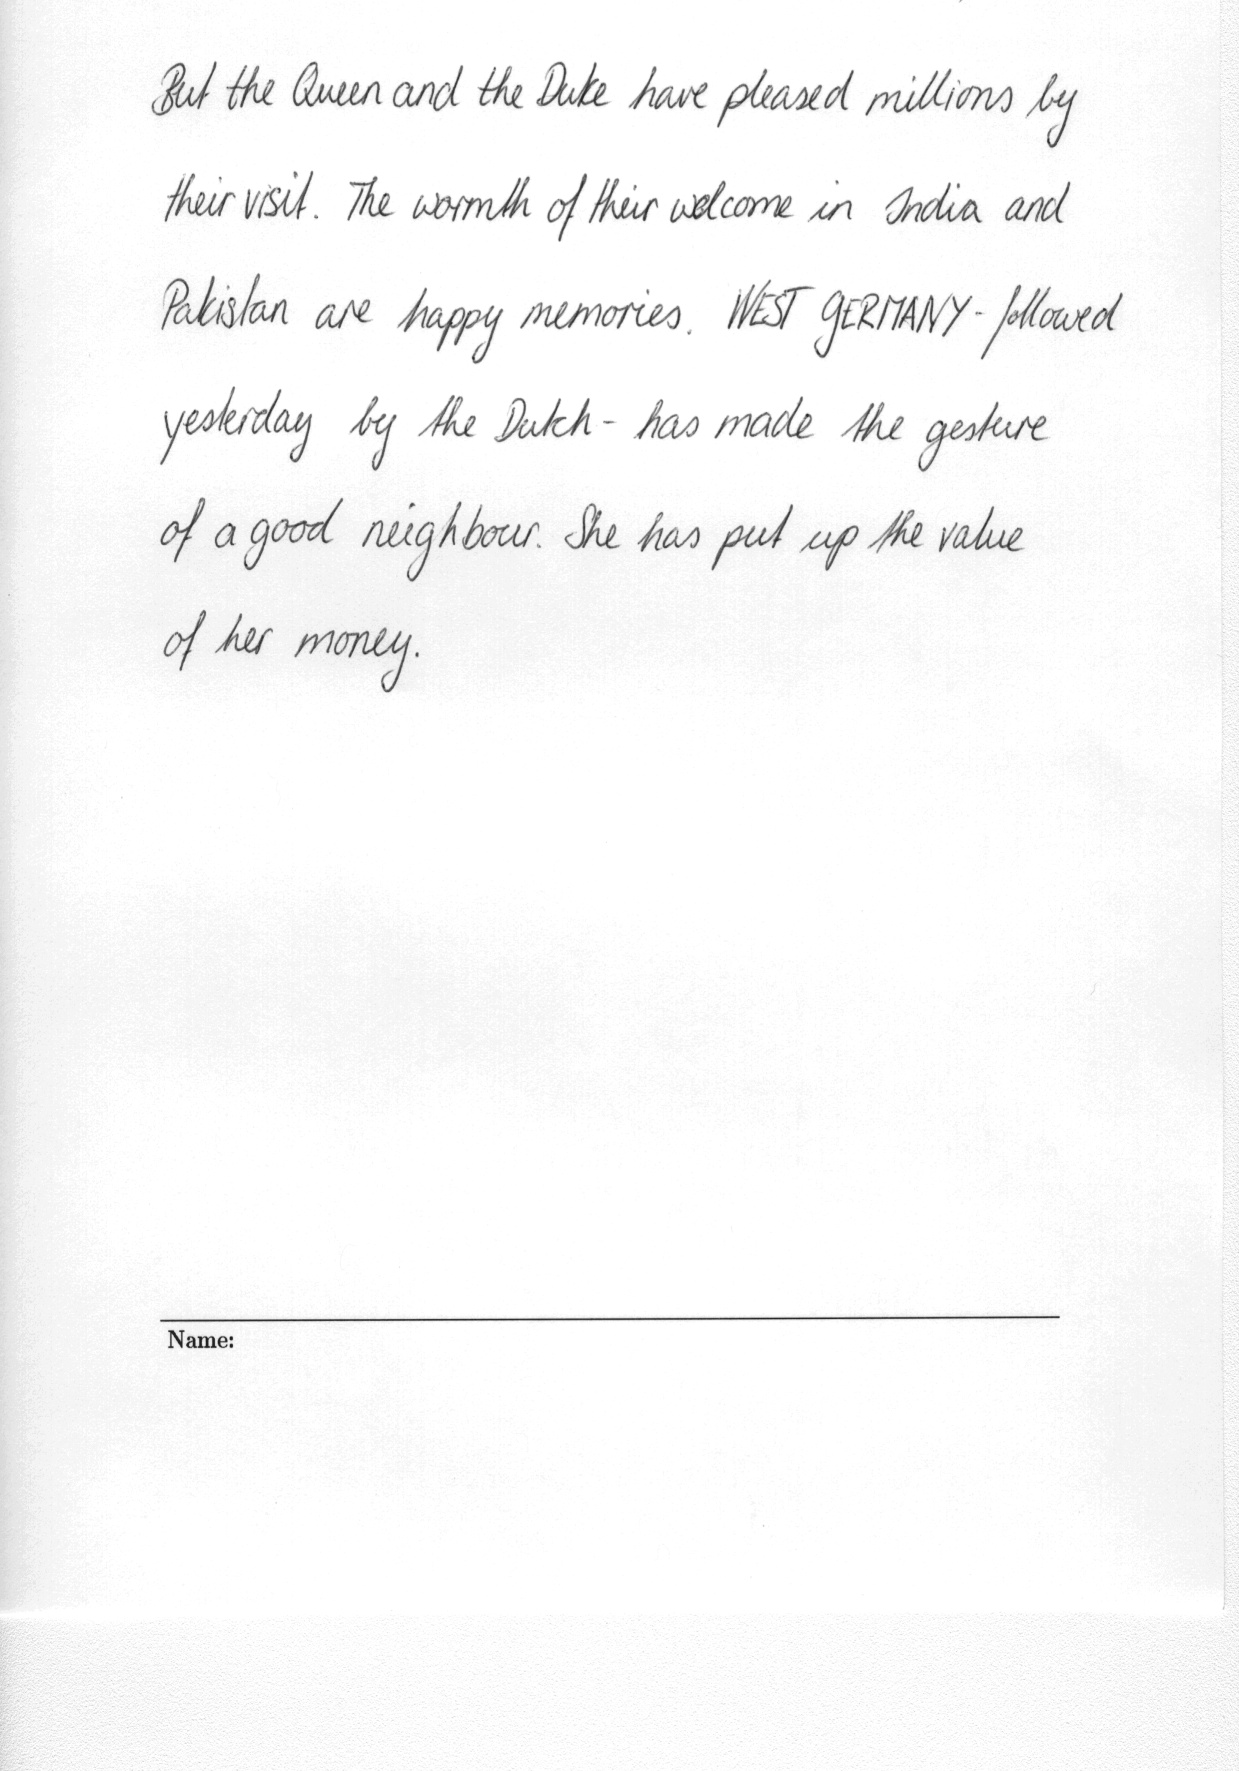 But the Queen and the Duke have pleased millions by
their visit. The warmth of their welcome in India and
Pakistan are happy memories. WEST GERMANY - followed
yesterday by the Dutch - has made the gesture
of a good neighbour. She has put up the value
of her money.
Name: